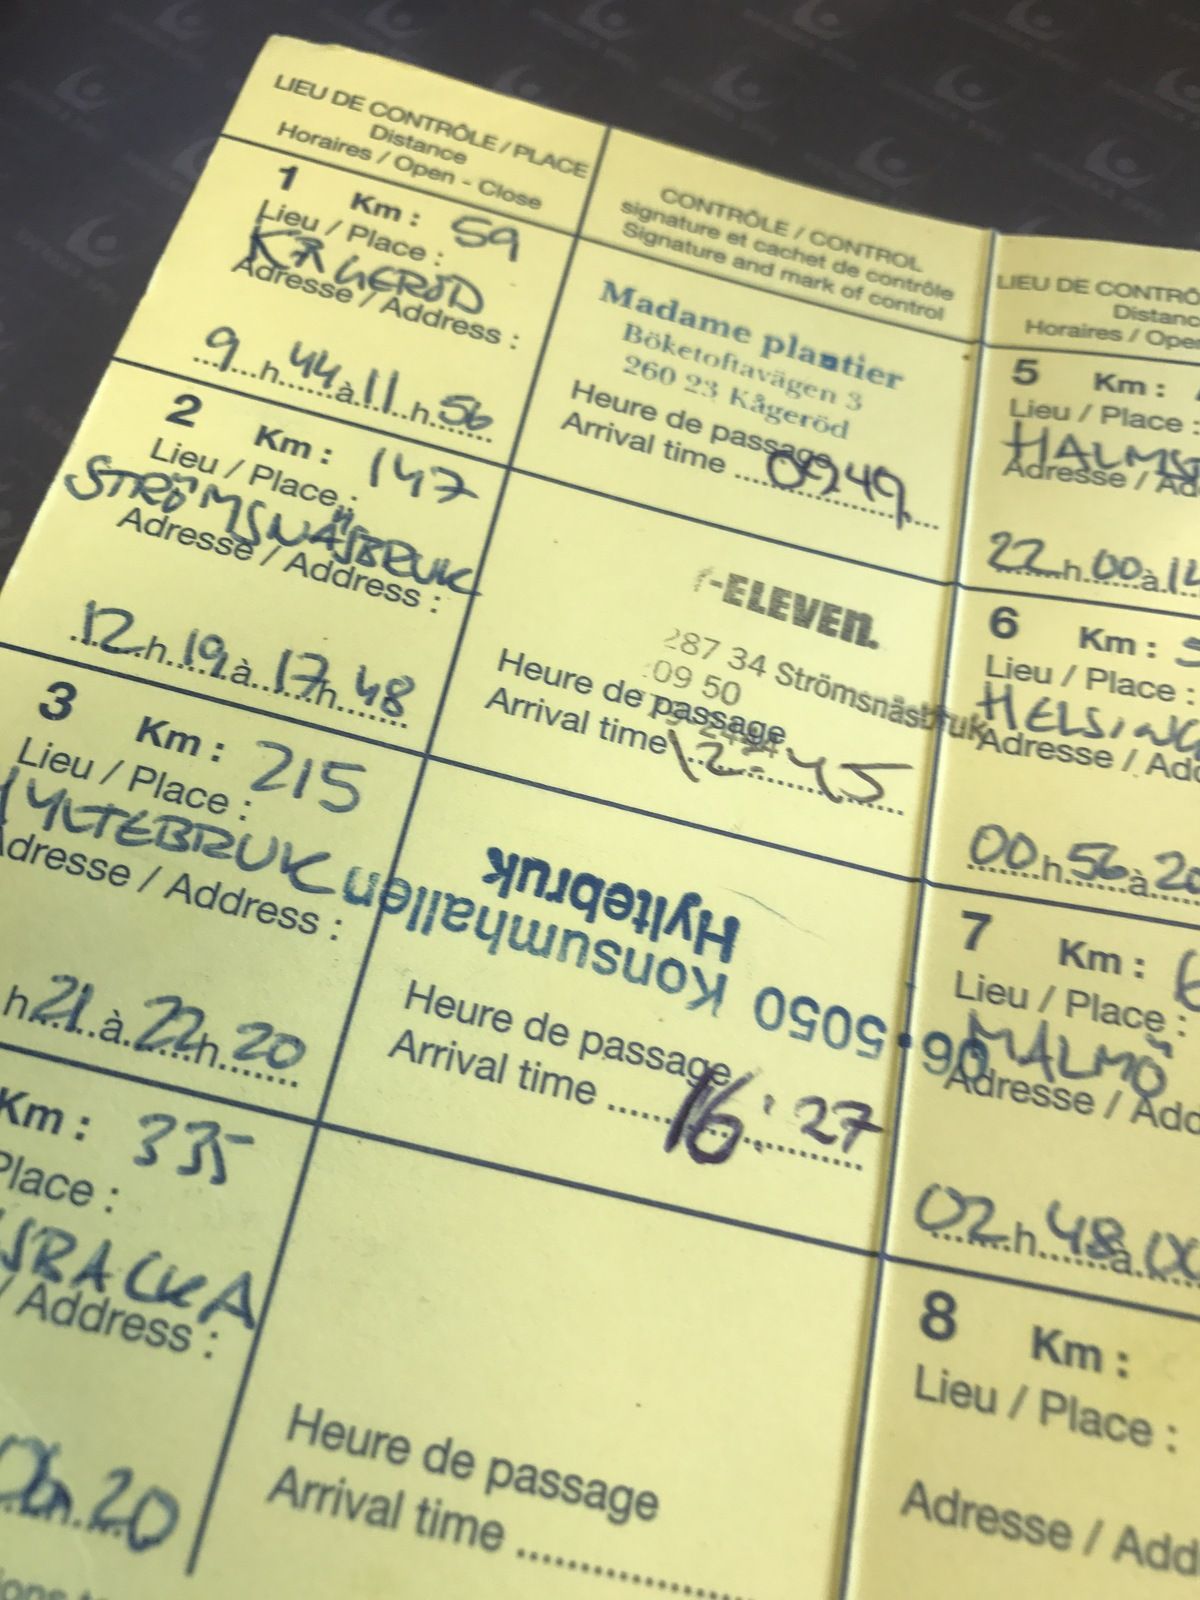 LIEU DE CONTRÔLE / PLACE
Distance
Horaires / Open - Close
CONTRÔLE / CONTROL
signature et cachet de contrôle
Signature and mark of control
1 Km : 59
Lieu / Place :
KÅGERÖD
Adresse / Address :
9 h 44 à 11 h 56
Madame plantier
Böketoftavägen 3
260 23 Kågeröd
Heure de passage
Arrival time 0949
2 Km : 147
Lieu / Place :
STRÖMSNÄSBRUK
Adresse / Address :
12 h 19 à 17 h 48
-ELEVEN.
287 34 Strömsnäsbruk
09 50
Heure de passage
Arrival time 12:45
3 Km : 215
Lieu / Place :
HYLTEBRUK
Adresse / Address :
h 21 à 22 h 20
06.5050 Konsumhallen
Hyltebruk
Heure de passage
Arrival time 16:27
Km : 335
Place :
/ Address :
h 20
Heure de passage
Arrival time
LIEU DE CONTRÔ
Distanc
Horaires / Ope
5 Km :
Lieu / Place :
HALMS
Adresse / Ad
22 h 00 à 14
6 Km : 5
Lieu / Place :
HELSING
Adresse / Add
00 h 56 à 20
7 Km : 6
Lieu / Place :
MALMÖ
Adresse / Add
02 h 48 à
8 Km :
Lieu / Place :
Adresse / Add